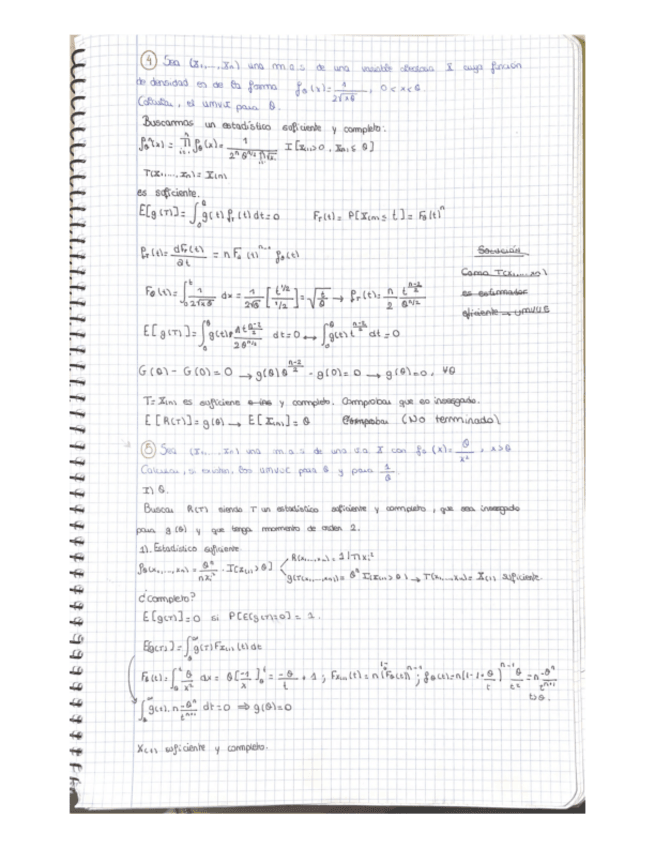 ④ Sea (X₁,...,Xₙ) una m.a.s de una variable aleatoria X cuya función
de densidad es de la forma f_θ(x) = 1/(2√(xθ)), 0 < x < θ.
Calcular, el UMVUE para θ.
Buscamos un estadístico suficiente y completo:
f_θⁿ(x) = ∏ f_θ(x) = 1/(2ⁿ θ^(n/2) ∏√xᵢ) I[X₍₁₎>0, X₍ₙ₎ ≤ θ]
T(X₁,...,Xₙ) = X₍ₙ₎
es suficiente.
E[g(T)] = ∫₀^θ g(t) f_T(t) dt = 0 F_T(t) = P[X₍ₙ₎ ≤ t] = F_θ(t)ⁿ
f_T(t) = dF_T(t)/dt = n F_θ(t)^(n-1) f_θ(t)
Solución
Como T(X₁,...,Xₙ)
es estimador
eficiente → UMVUE
F_θ(t) = ∫₀^t 1/(2√(xθ)) dx = 1/(2√θ) [t^(1/2)/(1/2)] = √(t/θ) → f_T(t) = n/2 t^((n-2)/2)/θ^(n/2)
E[g(T)] = ∫₀^θ g(t) dt = 0 → ∫₀^θ g(t) t^((n-2)/2) dt = 0
G(θ) - G(0) = 0 → g(θ) θ^((n-2)/2) - g(0) = 0 → g(θ) = 0, ∀θ
T = X₍ₙ₎ es suficiene y completo. Comprobar que es insesgado.
E[R(T)] = g(θ) → E[X₍ₙ₎] = θ Comprobar (No terminado)
⑤ Sea (X₁,...,Xₙ) una m.a.s de una v.a X con f_θ(x) = θ/x², x > θ
Calcular, si existen, los UMVUE para θ y para 1/θ.
I) θ.
Buscar R(T) siendo T un estadístico suficiente y completo, que sea insesgado
para g(θ) y que tenga momento de orden 2.
1). Estadístico suficiente
f_θ(x₁,...,xₙ) = θⁿ/∏xᵢ² · I[X₍₁₎ > θ] h(x₁,...,xₙ) = 1/∏xᵢ²
g(T(x₁,...,xₙ)) = θⁿ I[X₍₁₎ > θ] → T(x₁,...,xₙ) = X₍₁₎ suficiente.
¿Completo?
E[g(T)] = 0 si P[g(T) = 0] = 1.
E[g(T)] = ∫_θ^∞ g(T) f_X₍₁₎(t) dt
F_θ(t) = ∫_θ^t θ/x² dx = θ[-1/x]_θ^t = -θ/t + 1;
∫_θ^∞ g(t) · n θⁿ/t^(n+1) dt = 0 ⇒ g(θ) = 0
X₍₁₎ suficiente y completo.